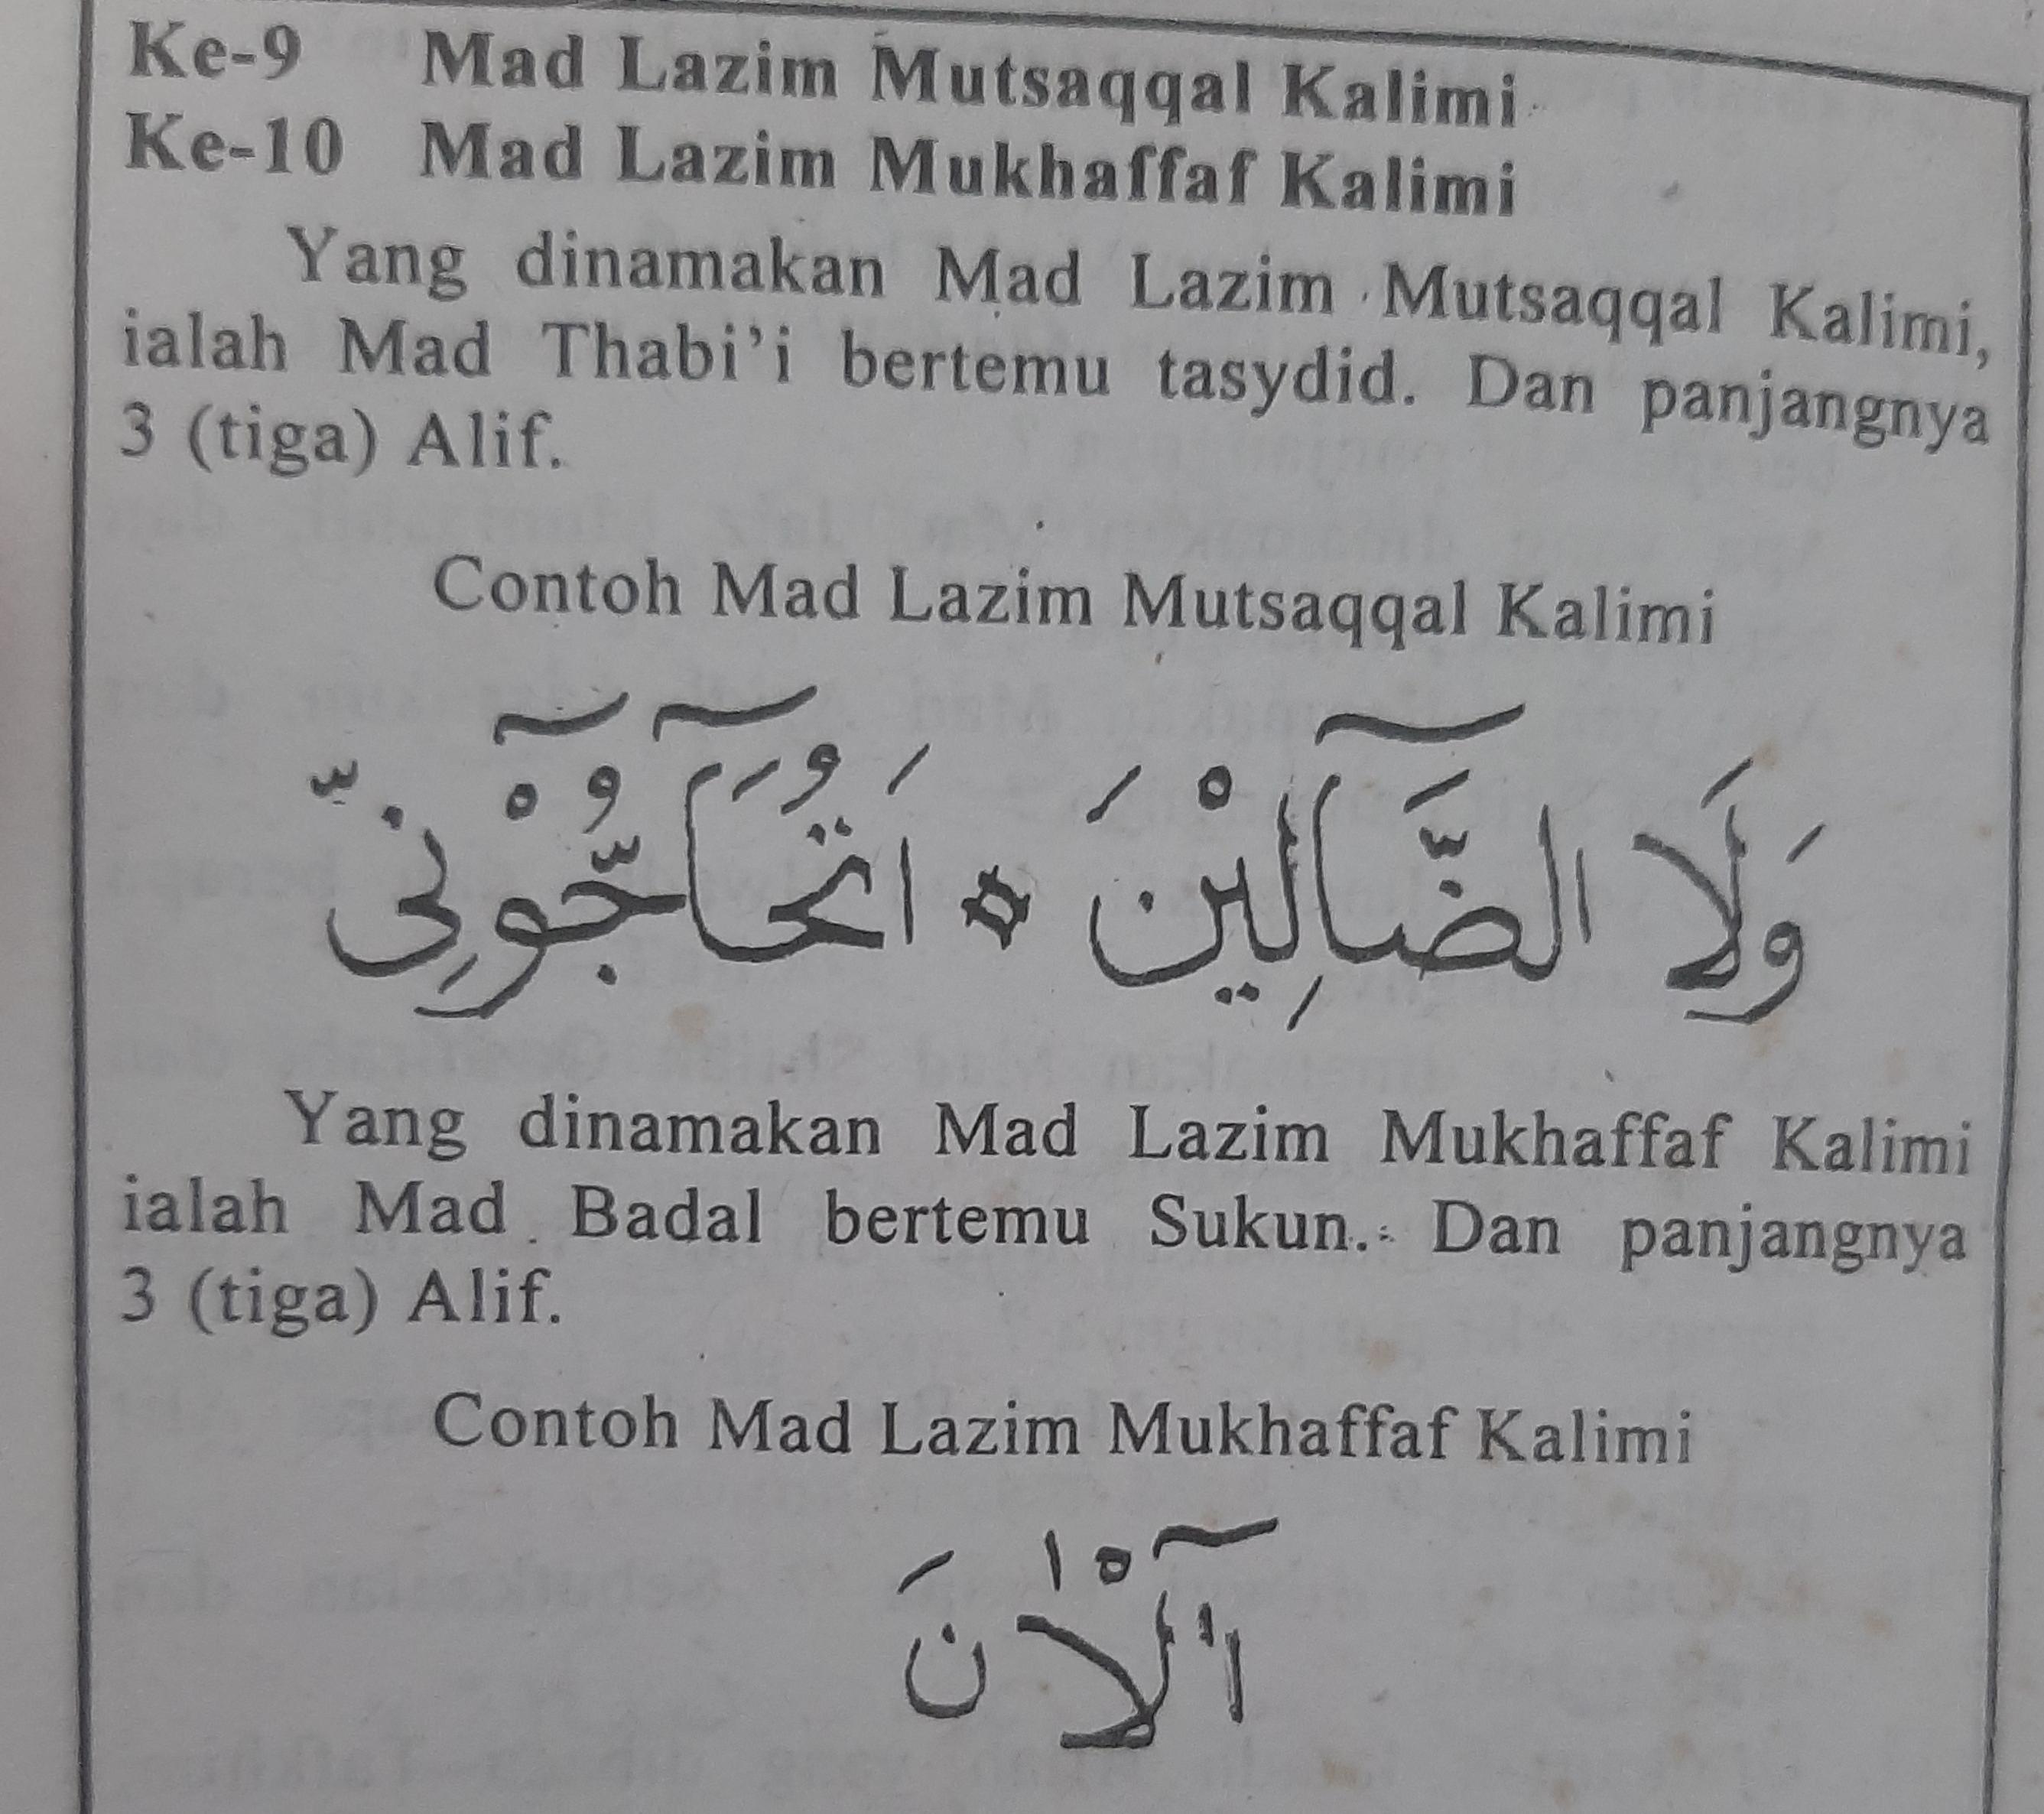 Ke-9 Mad Lazim Mutsaqqal Kalimi
Ke-10 Mad Lazim Mukhaffaf Kalimi
Yang dinamakan Mad Lazim Mutsaqqal Kalimi,
ialah Mad Thabi'i bertemu tasydid. Dan panjangnya
3 (tiga) Alif.
Contoh Mad Lazim Mutsaqqal Kalimi
وَلَا الضَّآلِيْنَ * اَتُحَآجُّوْٓنِّى
Yang dinamakan Mad Lazim Mukhaffaf Kalimi
ialah Mad Badal bertemu Sukun. Dan panjangnya
3 (tiga) Alif.
Contoh Mad Lazim Mukhaffaf Kalimi
آٰلْاٰنَ